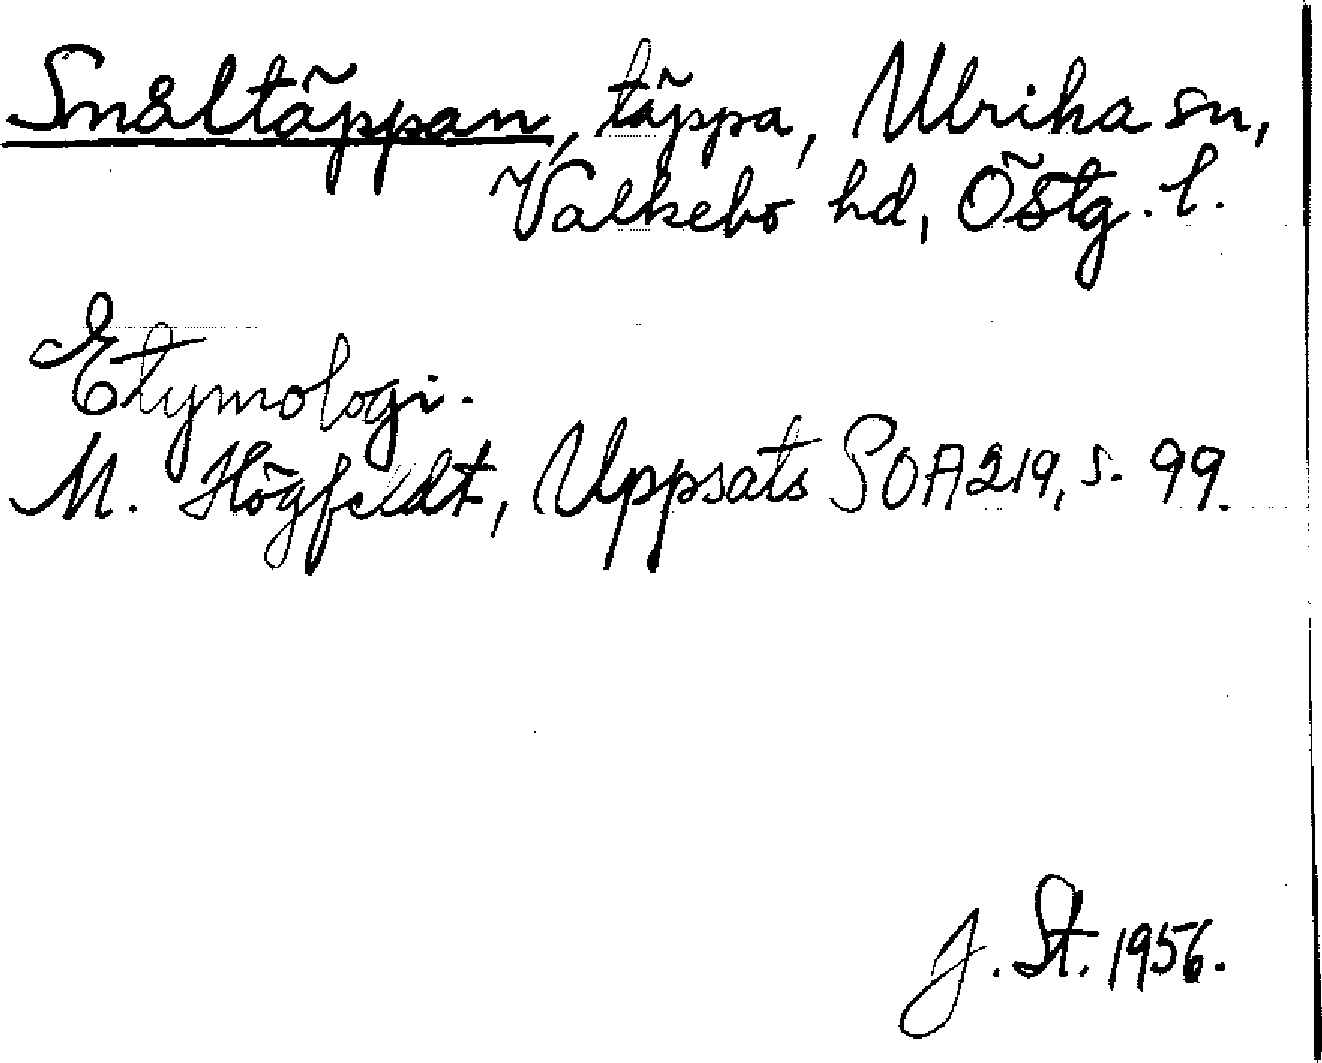 Snåltäppan, täppa, Ulrika sn,
Valkebo hd, Östg. l.
Etymologi.
M. Högfeldt, Uppsats SOA 219, s. 99.
J. St. 1956.